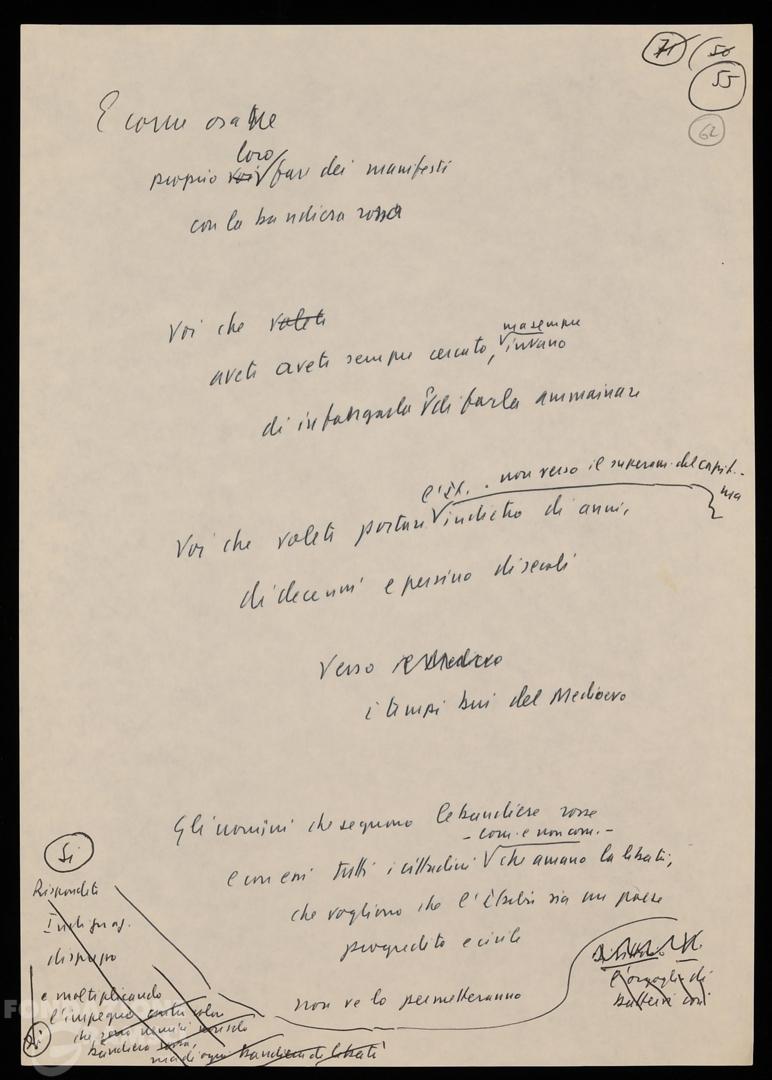 71 50
55
62
E come osate
loro
proprio voi far dei manifesti
con la bandiera rossa
Voi che volete
ma sempre
avete avete sempre cercato, invano
di infangarla di farla ammainare
l'It. . non verso il superam. del capit. -
ma
Voi che volete portare indietro di anni,
di decenni e persino di secoli
verso il Medioevo
i tempi bui del Medioevo
Gli uomini che seguono le bandiere rosse
- com. e non com. -
e con essi tutti i cittadini che amano la libertà,
che vogliono che l'Italia sia un paese
progredito e civile
non ve lo permetteranno
Si
Rispondete
Indignaz.
disprezzo
e moltiplicando
l'impegno
che sono nemici non solo
bandiera rossa,
ma di ogni bandiera di libertà
l'orgoglio di
battersi così
FONDAZIONE